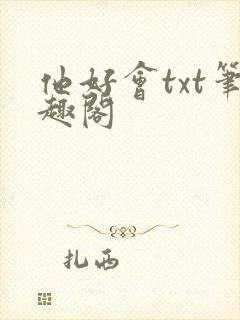 他好會txt筆
趣閣
扎西